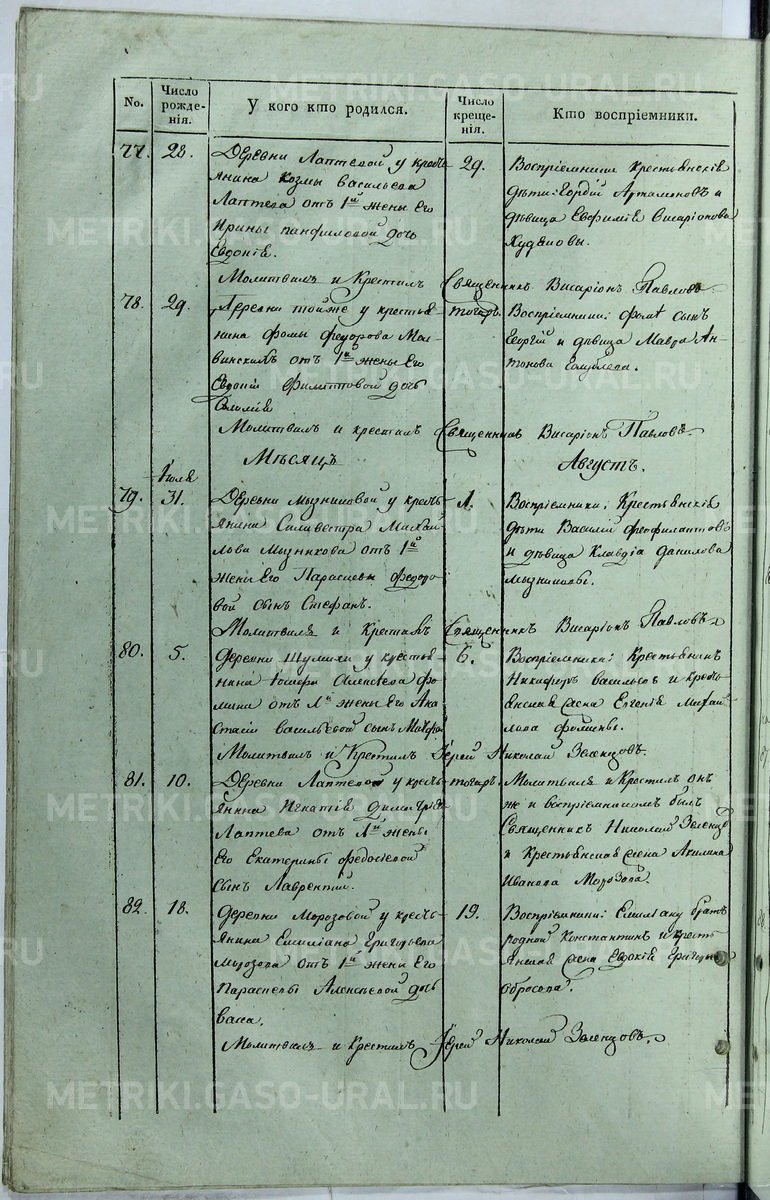 No.
Число рожде-нія.
У кого кто родился.
Число креще-нія.
Кто воспріемники.
77.
28.
Деревни Лаптевой у кресть
янина Козмы Васильева
Лаптева отъ 1й жены Его
Ирины панфиловой дочь
Евдокія.
29.
Воспріемники Крестьянскіе
дѣти: Гордій Артамоновъ и
дѣвица Евфимія Висаріонова
Молитвилъ и Крестилъ Священникъ Висаріонъ Павловъ
78.
29.
Деревни тойже у крестья
нина Фомы федорова
отъ 1й жены Его
Евдокіи Филиповой дочь
Соломія
тогожъ.
Воспріемники: фома сынъ
Георгій и дѣвица Мавра Ан-
тонова
Молитвилъ и крестилъ Священникъ Висаріонъ Павловъ
Мѣсяцъ Августъ.
79.
Іюля
31.
Деревни Мызниковой у кресть
янина Силивестра Михай
лова Мызникова отъ 1й
жены Его Параскевы федоро
вой сынъ Стефанъ.
1.
Воспріемники; Крестьянскіе
дѣти Василій феофилактовъ
и дѣвица Клавдіа данилова
мызниковы.
Молитвилъ и Крестилъ Священникъ Висаріонъ Павловъ
80.
5.
Деревни Шумихи у крестья
нина Іосифа Алексѣева фо
мина отъ 1й жены Его Ана
стасіи васильевой сынъ
6.
Воспріемники: Крестьянинъ
Никифоръ васильевъ и кресть
янская жена Евгенія Михай
лова фомины.
Молитвилъ и Крестилъ Іерей Николай Зеленцовъ.
81.
10.
Деревни Лаптевой у кресть
янина Игнатія димитріева
Лаптева отъ 1й жены
Его Екатерины федосѣевой
сынъ Лаврентій.
тогожъ.
Молитвилъ и Крестилъ онъ
же и воспріемникомъ былъ
Священникъ Николай Зеленцовъ
и Крестьянская жена Акилина
Иванова Морозова.
82.
18.
Деревни Морозовой у кресть
янина Емиліана Григорьева
Морозова отъ 1й жены Его
Параскевы Алексѣевой дочь
васа.
19.
Воспріемники: Емиліану братъ
родной Константинъ и кресть
янская жена Евдокія Григорьева
Молитвилъ и Крестилъ Іерей Николай Зеленцовъ.
METRIKI.GASO-URAL.RU